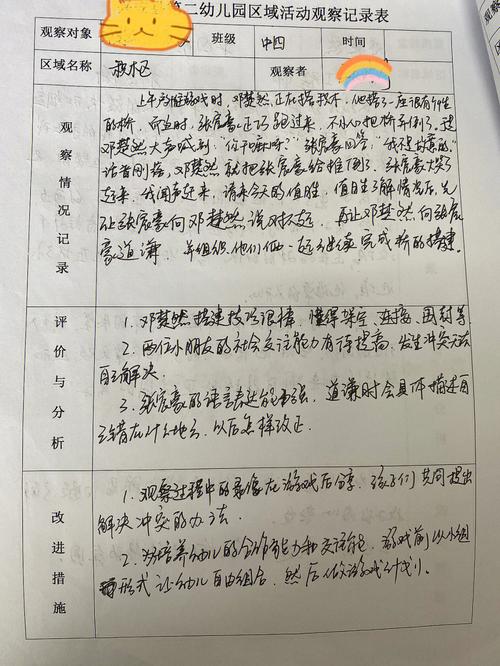 第二幼儿园区域活动观察记录表
观察对象 班级 中四 时间
区域名称 积木区 观察者
观察情况记录
上午离堆游戏时,邓楚然正在搭积木,他搭了一座很有个性
的桥,而此时,张宸豪正巧跑过来,不小心把桥弄倒了。楚
邓楚然大声喊到:“你干嘛呀?”张宸豪回答:“我不是故意的。”
话音刚落,邓楚然就把张宸豪给推倒了。张宸豪大哭了
起来,我闻声赶来,请来今天的值日生,值日生了解情况后,先
让张宸豪向邓楚然说对不起,再让邓楚然向张宸
豪道谦,并组织他们在一起合作完成桥的搭建。
评价与分析
1. 邓楚然搭建技巧很棒,懂得架空、连接、围封等
2. 两位小朋友的社会交往能力有待提高,发生冲突无法
自己解决
3. 张宸豪的语言表达能力强,道谦时会具体描述自
己错在什么地方,以后怎样改正.
改进措施
1. 观察过程中的录像在游戏后分享,孩子们共同提出
解决冲突的办法.
2. 为培养幼儿的合作能力和交往能,游戏前以小组
形式让幼儿自由组合,然后做游戏计划。